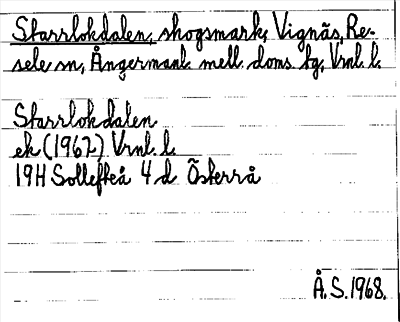 Starrlokdalen, skogsmark, Vignäs, Re-
sele sn, Ångermanl. mell. doms. tg, Vrnl. l.
Starrlokdalen
ek (1962) Vrnl. l.
19H Sollefteå 4 d Österrå
Å.S.1968.